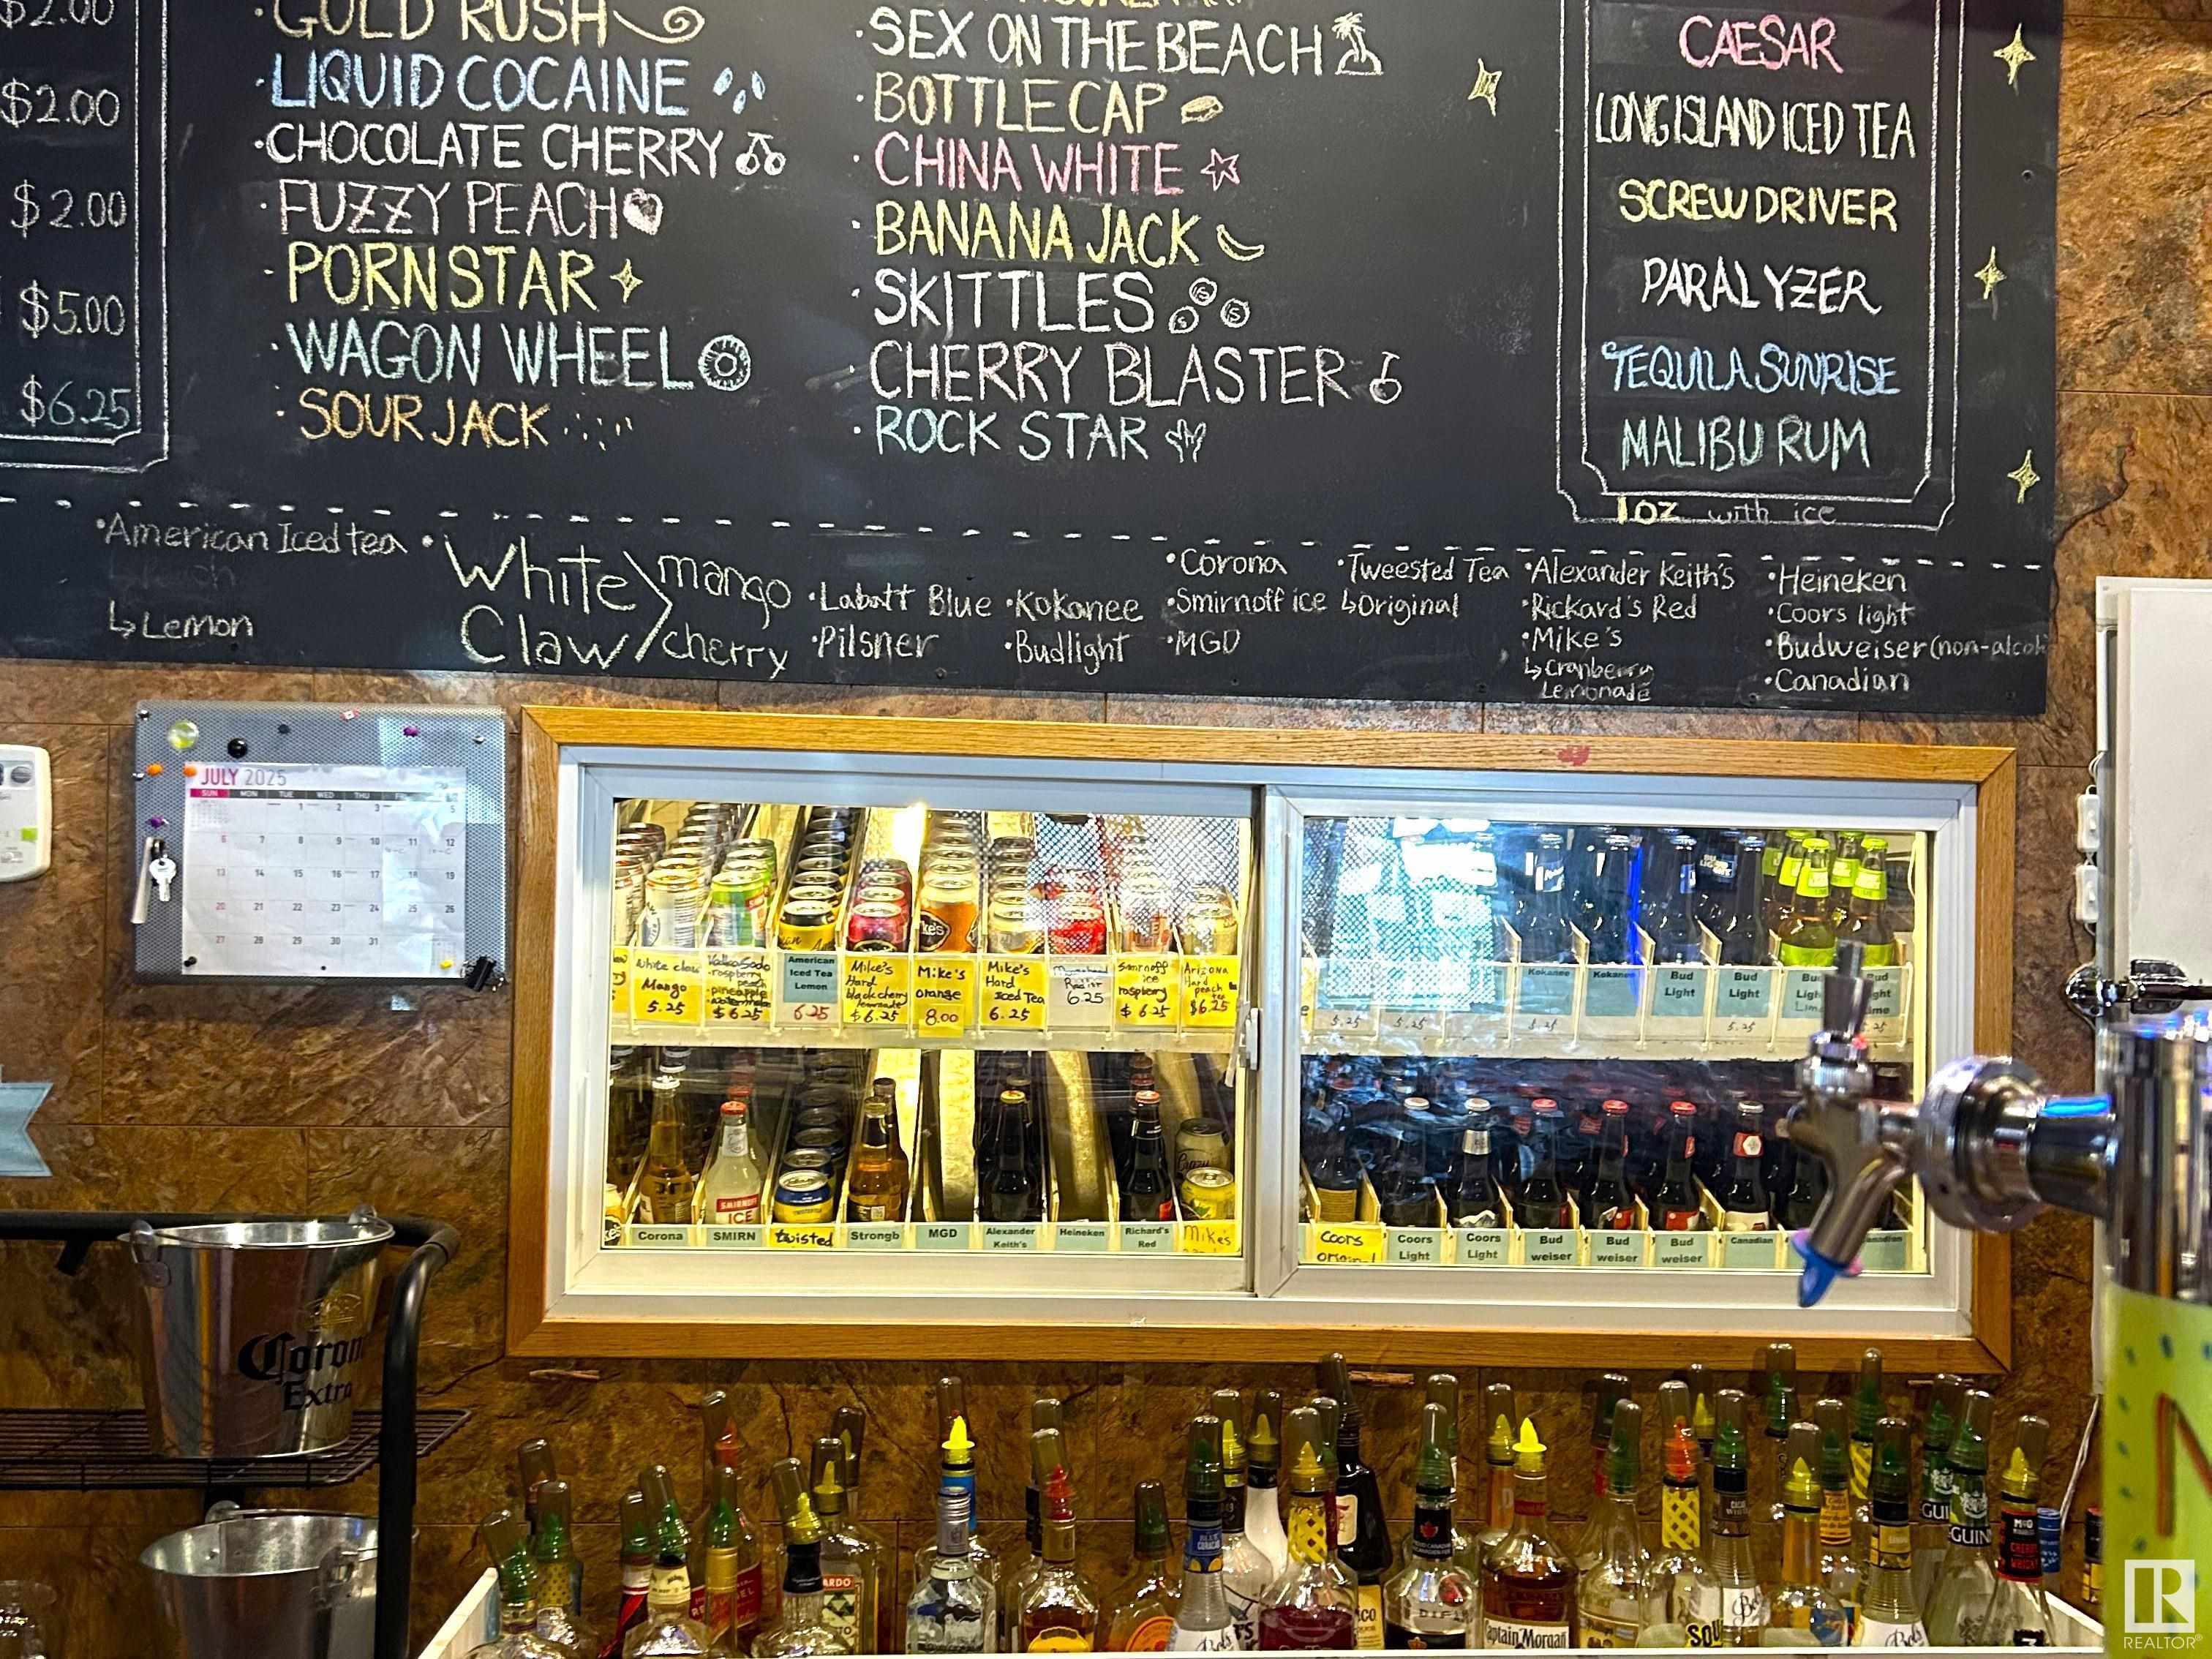 $2.00
$2.00
$2.00
$5.00
$6.25
GOLD RUSH
·LIQUID COCAINE
·CHOCOLATE CHERRY
·FUZZY PEACH
·PORNSTAR
·WAGON WHEEL
·SOUR JACK
·SEX ON THE BEACH
·BOTTLE CAP
·CHINA WHITE
·BANANA JACK
·SKITTLES
·CHERRY BLASTER
·ROCK STAR
CAESAR
LONG ISLAND ICED TEA
SCREWDRIVER
PARALYZER
TEQUILA SUNRISE
MALIBU RUM
1oz with ice
•American Iced tea
↳Lemon
•White Claw
mango
cherry
•Labatt Blue
•Pilsner
•Kokanee
•Budlight
•Corona
•Smirnoff ice
•MGD
•Tweested Tea
↳Original
•Alexander Keith's
•Rickard's Red
•Mike's
↳Cranberry
Lemonade
•Heineken
•Coors light
•Budweiser(non-alcoh
•Canadian
JULY 2025
SUN MON TUE WED THU FRI
1 2 3 5
6 7 8 9 10 11 12
13 14 15 16 17 18 19
20 21 22 23 24 25 26
27 28 29 30 31
White claw
Mango
5.25
Vodka Soda
raspberry
peach
pineapple
$6.25
American
Iced Tea
Lemon
6.25
Mike's
Hard
black cherry
lemonade
$6.25
Mike's
orange
8.00
Mike's
Hard
Iced Tea
6.25
6.25
Smirnoff
ice
raspberry
$6.25
Arizona
Hard
peach
$6.25
5.25
5.25
Kokanee
5.25
Kokanee
Bud
Light
Bud
Light
5.25
Bud
Light
Lime
5.25
SMIRNOFF
ICE
Corona
SMIRN
twisted
Strongb
MGD
Alexander
Keith's
Heineken
Richard's
Red
Mikes
Coors
original
Coors
Light
Coors
Light
Bud
weiser
Bud
weiser
Bud
weiser
Canadian
Corona
Extra
Captain Morgan
SOU
Bols
Bols
Bols
GUIN
REALTOR®